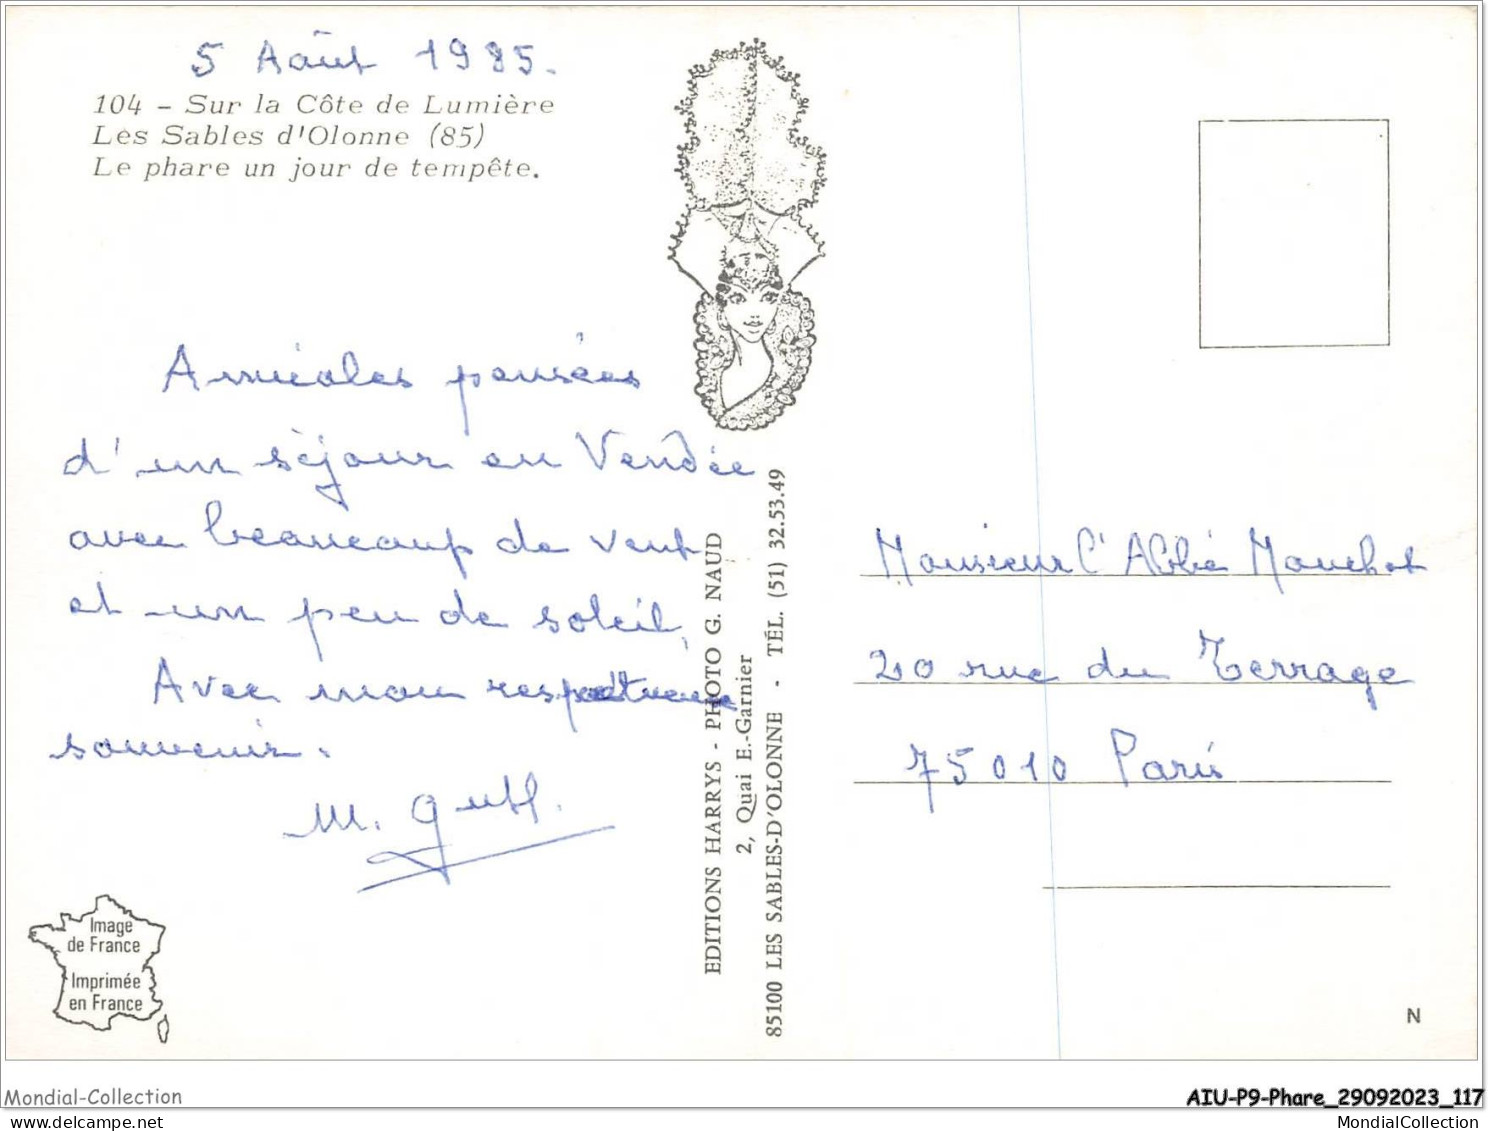 5 Août 1985.
104 - Sur la Côte de Lumière
Les Sables d'Olonne (85)
Le phare un jour de tempête.
Amicales pensées
d'un séjour en Vendée
avec beaucoup de vent
et un peu de soleil,
Avec mon respectueux
souvenir.
M.
Image
de France
Imprimée
en France
EDITIONS HARRYS - PHOTO G. NAUD
2, Quai E.-Garnier
85100 LES SABLES-D'OLONNE - TÉL. (51) 32.53.49
Monsieur l'Abbé Mouchot
20 rue du Terrage
75010 Paris
N
Mondial-Collection
AIU-P9-Phare_29092023_117
MondialCollection